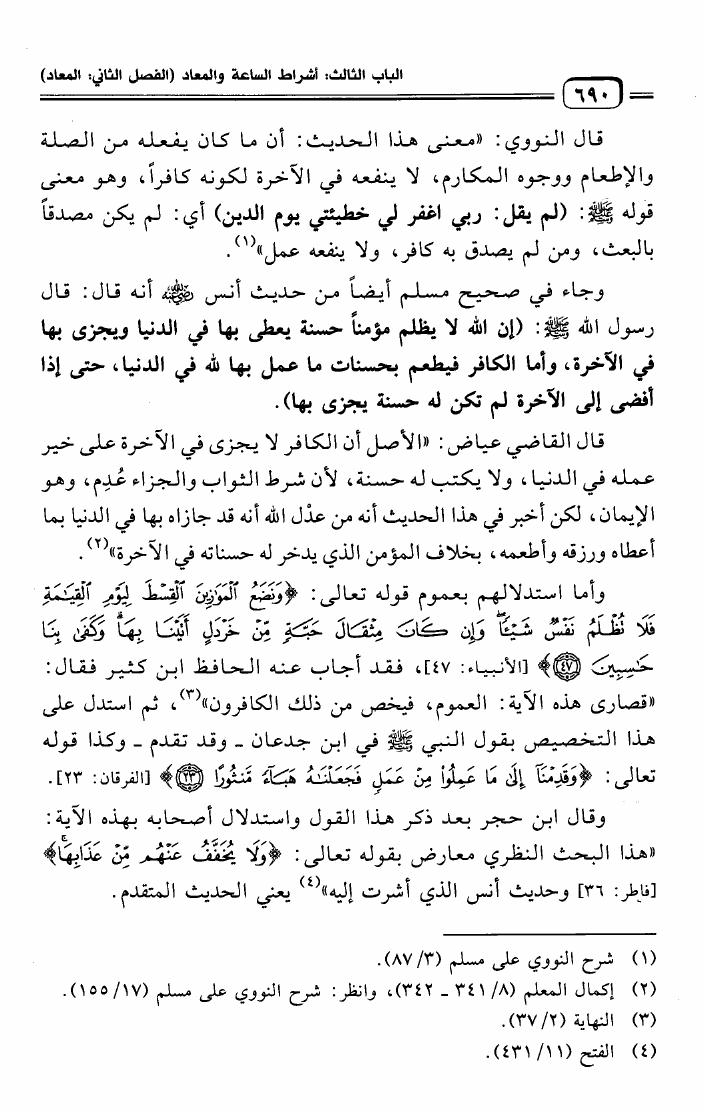 الباب الثالث: أشراط الساعة والمعاد (الفصل الثاني: المعاد)
٦٩٠
قال النووي: «معنى هذا الحديث: أن ما كان يفعله من الصلة
والإطعام ووجوه المكارم، لا ينفعه في الآخرة لكونه كافراً، وهو معنى
قوله ﷺ: (لم يقل: ربي اغفر لي خطيئتي يوم الدين) أي: لم يكن مصدقاً
بالبعث، ومن لم يصدق به كافر، ولا ينفعه عمل»(١).
وجاء في صحيح مسلم أيضاً من حديث أنس رضي الله عنه أنه قال: قال
رسول الله ﷺ: (إن الله لا يظلم مؤمناً حسنة يعطى بها في الدنيا ويجزى بها
في الآخرة، وأما الكافر فيطعم بحسنات ما عمل بها لله في الدنيا، حتى إذا
أفضى إلى الآخرة لم تكن له حسنة يجزى بها).
قال القاضي عياض: «الأصل أن الكافر لا يجزى في الآخرة على خير
عمله في الدنيا، ولا يكتب له حسنة، لأن شرط الثواب والجزاء عُدِم، وهو
الإيمان، لكن أخبر في هذا الحديث أنه من عدْل الله أنه قد جازاه بها في الدنيا بما
أعطاه ورزقه وأطعمه، بخلاف المؤمن الذي يدخر له حسناته في الآخرة»(٢).
وأما استدلالهم بعموم قوله تعالى: ﴿وَنَضَعُ ٱلْمَوَٰزِينَ ٱلْقِسْطَ لِيَوْمِ ٱلْقِيَٰمَةِ
فَلَا تُظْلَمُ نَفْسٌ شَيْـًٔا ۖ وَإِن كَانَ مِثْقَالَ حَبَّةٍ مِّنْ خَرْدَلٍ أَتَيْنَا بِهَا ۗ وَكَفَىٰ بِنَا
حَٰسِبِينَ ٤٧﴾ [الأنبياء: ٤٧]، فقد أجاب عنه الحافظ ابن كثير فقال:
«قصارى هذه الآية: العموم، فيخص من ذلك الكافرون»(٣)، ثم استدل على
هذا التخصيص بقول النبي ﷺ في ابن جدعان ـ وقد تقدم ـ وكذا قوله
تعالى: ﴿وَقَدِمْنَآ إِلَىٰ مَا عَمِلُوا۟ مِنْ عَمَلٍ فَجَعَلْنَٰهُ هَبَآءً مَّنثُورًا ٢٣﴾ [الفرقان: ٢٣].
وقال ابن حجر بعد ذكر هذا القول واستدلال أصحابه بهذه الآية:
«هذا البحث النظري معارض بقوله تعالى: ﴿وَلَا يُخَفَّفُ عَنْهُم مِّنْ عَذَابِهَا ۚ﴾
[فاطر: ٣٦] وحديث أنس الذي أشرت إليه»(٤) يعني الحديث المتقدم.
(١) شرح النووي على مسلم (٣/٨٧).
(٢) إكمال المعلم (٨/٣٤١ ـ ٣٤٢)، وانظر: شرح النووي على مسلم (١٧/١٥٥).
(٣) النهاية (٢/٣٧).
(٤) الفتح (١١/٤٣١).